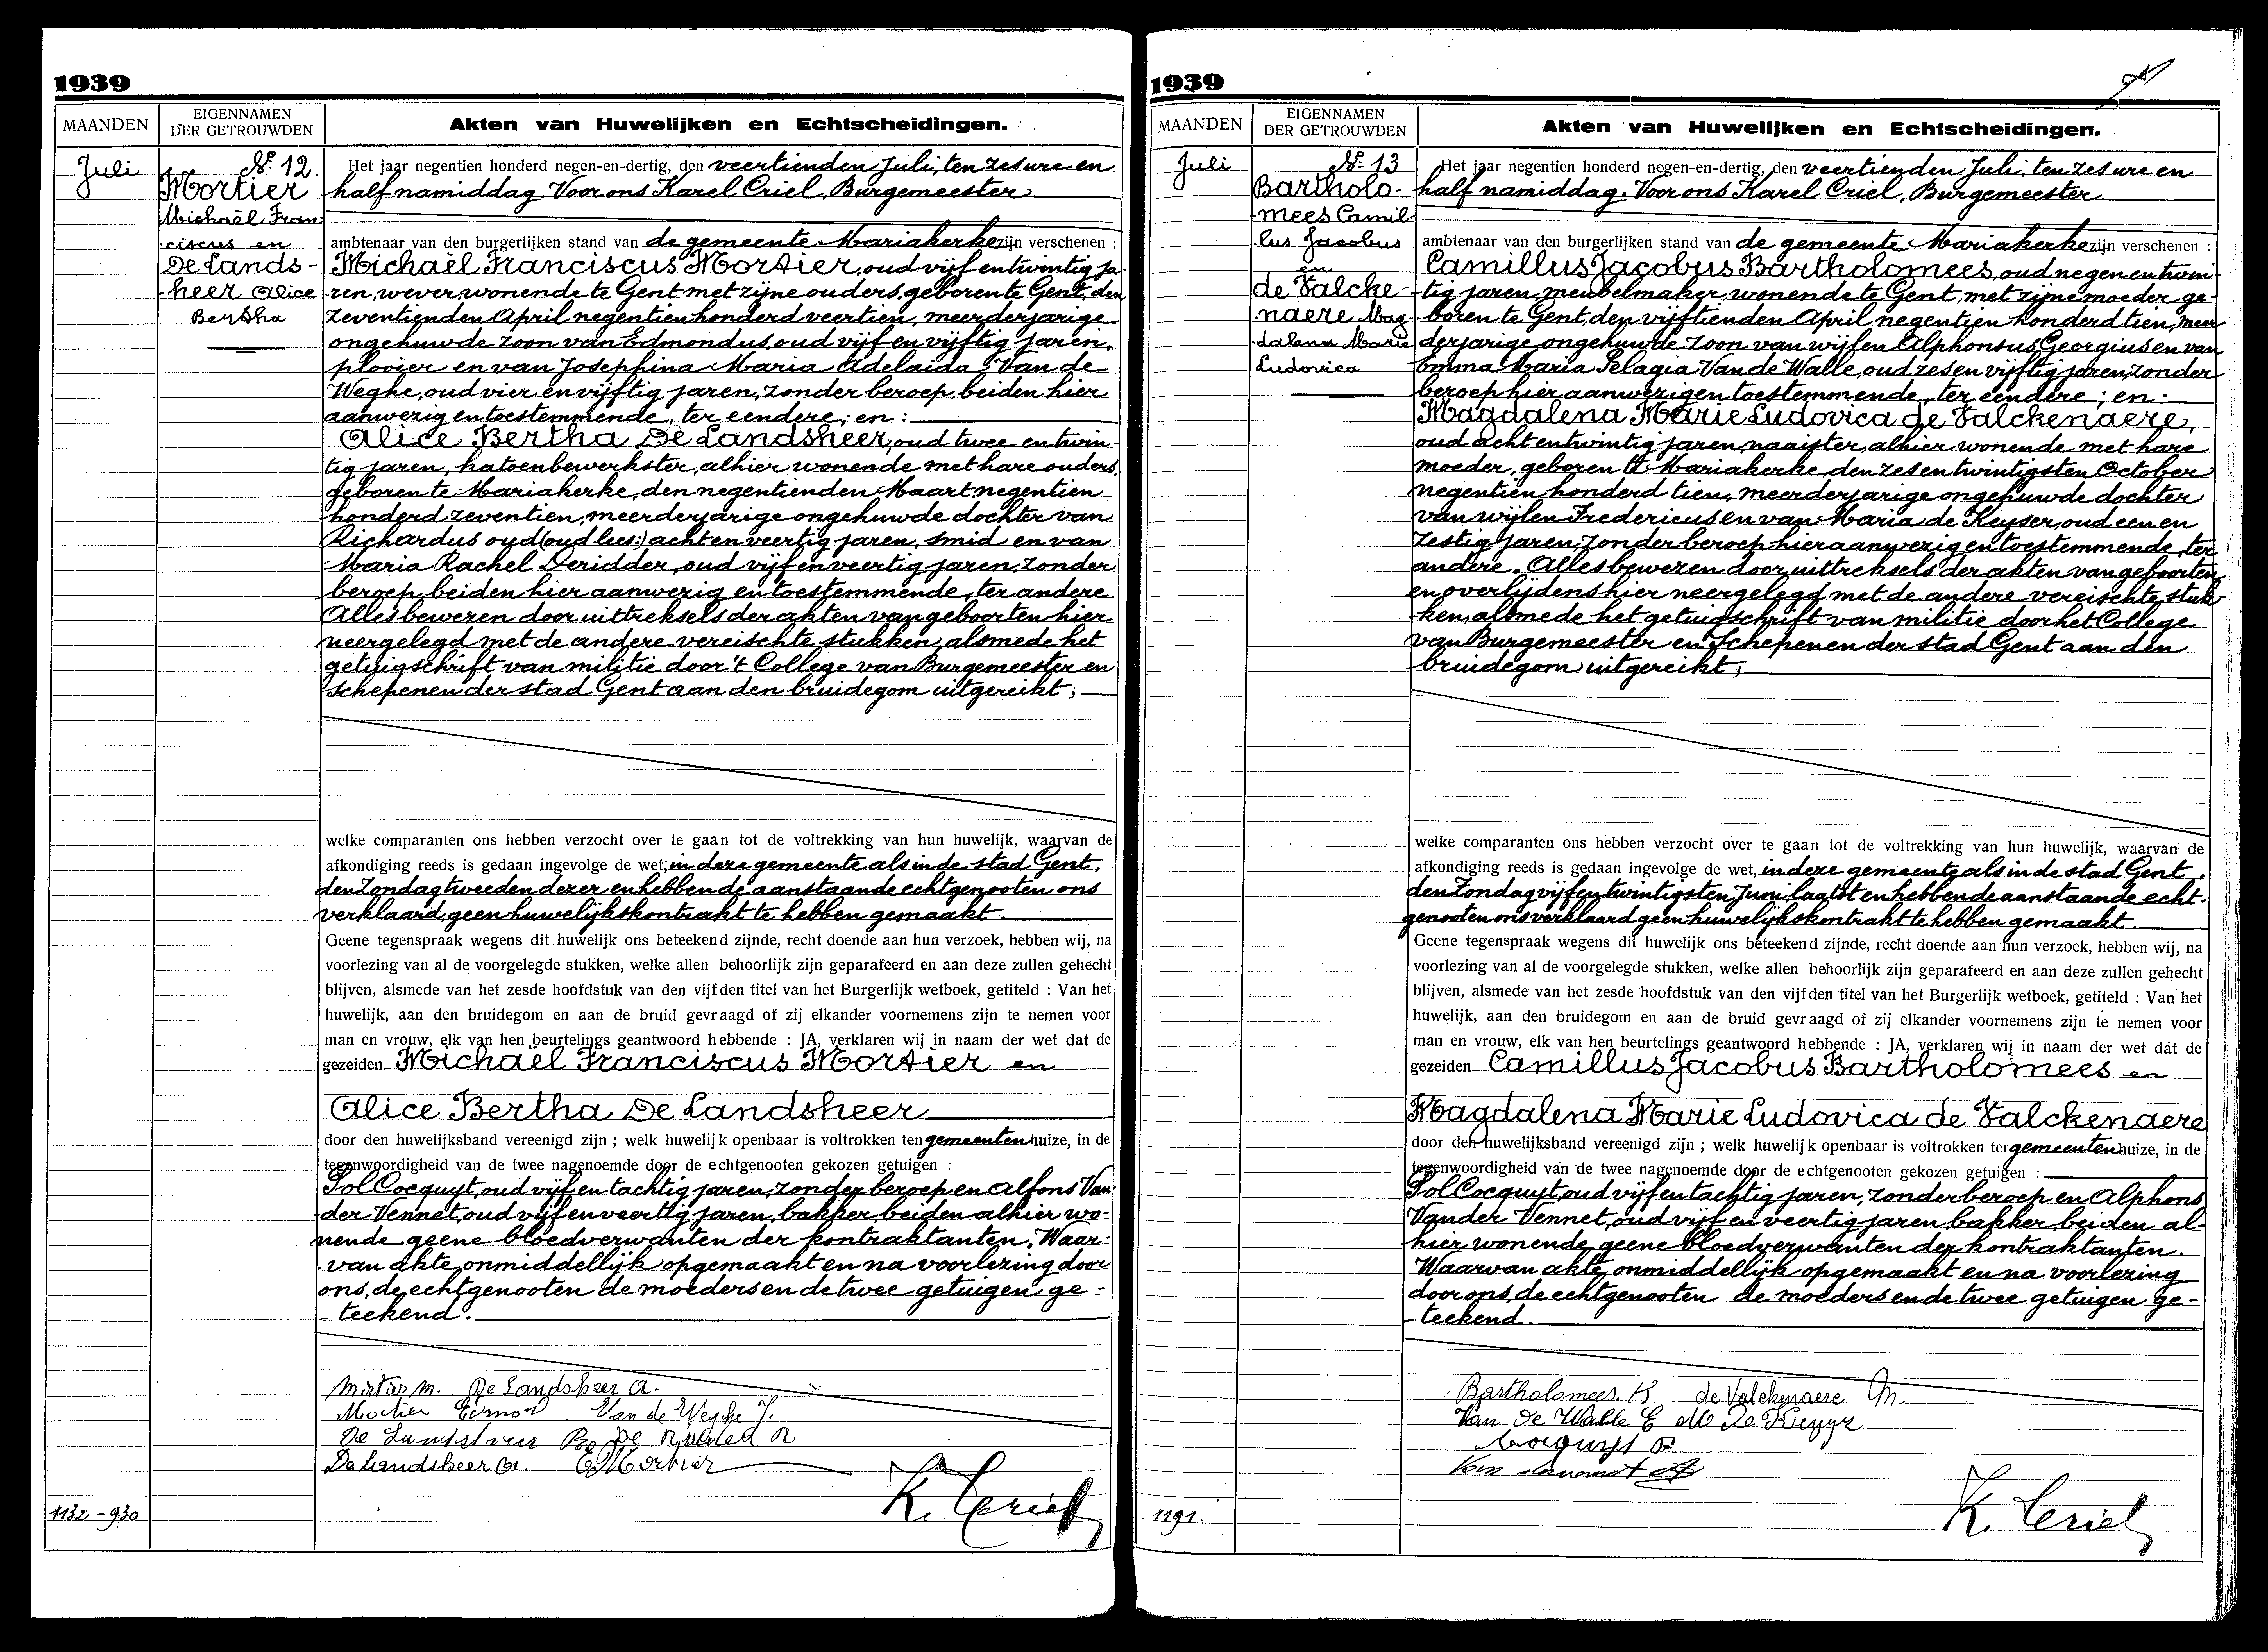 1939
MAANDEN
EIGENNAMEN
DER GETROUWDEN
Akten van Huwelijken en Echtscheidingen.
Juli
No. 12
Mortier
Michaël Fran
ciscus en
De Lands-
heer Alice
Bertha
Het jaar negentien honderd negen-en-dertig, den veertienden Juli, ten zes ure en
half namiddag Voor ons Karel Criel, Burgemeester
ambtenaar van den burgerlijken stand van de gemeente Mariakerke zijn verschenen :
Michaël Franciscus Mortier, oud vijf en twintig ja-
ren, wever, wonende te Gent met zijne ouders, geboren te Gent, den
zeventienden April negentien honderd veertien, meerderjarige
ongehuwde zoon van Edmondus, oud vijf en vijftig jaren,
plooier en van Josephina Maria Adelaida Van de
Weghe, oud vier en vijftig jaren, zonder beroep, beiden hier
aanwezig en toestemmende, ter eendere; en :
Alice Bertha De Landsheer, oud twee en twin-
tig jaren, katoenbewerkster, alhier wonende met hare ouders,
geboren te Mariakerke, den negentienden Maart negentien
honderd zeventien, meerderjarige ongehuwde dochter van
Richardus oyd (oud lees:) acht en veertig jaren, smid en van
Maria Rachel Deridder, oud vijf en veertig jaren, zonder
beroep, beiden hier aanwezig en toestemmende, ter andere.
Alles bewezen door uittreksels der akten van geboorten hier
neergelegd met de andere vereischte stukken, alsmede het
getuigschrift van militie door 't College van Burgemeester en
schepenen der stad Gent aan den bruidegom uitgereikt;
welke comparanten ons hebben verzocht over te gaan tot de voltrekking van hun huwelijk, waarvan de
afkondiging reeds is gedaan ingevolge de wet, in deze gemeente als in de stad Gent,
den Zondag tweeden dezer en hebben de aanstaande echtgenooten ons
verklaard, geen huwelijkskontrakt te hebben gemaakt.
Geene tegenspraak wegens dit huwelijk ons beteekend zijnde, recht doende aan hun verzoek, hebben wij, na
voorlezing van al de voorgelegde stukken, welke allen behoorlijk zijn geparafeerd en aan deze zullen gehecht
blijven, alsmede van het zesde hoofdstuk van den vijfden titel van het Burgerlijk wetboek, getiteld : Van het
huwelijk, aan den bruidegom en aan de bruid gevraagd of zij elkander voornemens zijn te nemen voor
man en vrouw, elk van hen beurtelings geantwoord hebbende : JA, verklaren wij in naam der wet dat de
gezeiden Michaël Franciscus Mortier en
Alice Bertha De Landsheer
door den huwelijksband vereenigd zijn ; welk huwelijk openbaar is voltrokken ten gemeentenhuize, in de
tegenwoordigheid van de twee nagenoemde door de echtgenooten gekozen getuigen :
Pol Cocquyt, oud vijf en tachtig jaren, zonder beroep en Alfons Van
der Vennet, oud vijf en veertig jaren, bakker, beiden alhier wo-
nende geene bloedverwanten der kontraktanten. Waar-
van akte, onmiddellijk opgemaakt en na voorlezing door
ons, de echtgenooten de moeders en de twee getuigen ge-
teekend.
Mortier M. De Landsheer A.
Mortier Van de Weghe J.
De Landsheer De Ridder R
De Landsheer A. Mortier
K. Criel
1132 - 930
1939
MAANDEN
EIGENNAMEN
DER GETROUWDEN
Akten van Huwelijken en Echtscheidingen.
Juli
No. 13
Bartholo-
mees Camil-
lus Jacobus
en
de Valcke-
naere Mag-
dalena Marie
Ludovica
Het jaar negentien honderd negen-en-dertig, den veertienden Juli, ten zes ure en
half namiddag. Voor ons Karel Criel, Burgemeester
ambtenaar van den burgerlijken stand van de gemeente Mariakerke zijn verschenen :
Camillus Jacobus Bartholomees, oud negen en twin-
tig jaren, meubelmaker, wonende te Gent, met zijne moeder ge-
boren te Gent, den vijftienden April negentien honderd tien, meer-
derjarige ongehuwde zoon van wijlen Alphonsus Georgius en van
Emma Maria Pelagia Van de Walle, oud zes en vijftig jaren, zonder
beroep hier aanwezig en toestemmende, ter eendere ; en :
Magdalena Marie Ludovica de Valckenaere,
oud acht en twintig jaren, naaister, alhier wonende met hare
moeder, geboren te Mariakerke, den zes en twintigsten October
negentien honderd tien, meerderjarige ongehuwde dochter
van wijlen Fredericus en van Maria de Keyser, oud een en
zestig jaren, zonder beroep hier aanwezig en toestemmende, ter
andere. Alles bewezen door uittreksels der akten van geboorten
en overlijdens hier neergelegd met de andere vereischte stuk-
ken, alsmede het getuigschrift van militie door het College
van Burgemeester en Schepenen der stad Gent aan den
bruidegom uitgereikt;
welke comparanten ons hebben verzocht over te gaan tot de voltrekking van hun huwelijk, waarvan de
afkondiging reeds is gedaan ingevolge de wet, in deze gemeente als in de stad Gent,
den Zondag vijf en twintigsten Juni laatst en hebben de aanstaande echt-
genooten ons verklaard geen huwelijkskontrakt te hebben gemaakt.
Geene tegenspraak wegens dit huwelijk ons beteekend zijnde, recht doende aan hun verzoek, hebben wij, na
voorlezing van al de voorgelegde stukken, welke allen behoorlijk zijn geparafeerd en aan deze zullen gehecht
blijven, alsmede van het zesde hoofdstuk van den vijfden titel van het Burgerlijk wetboek, getiteld : Van het
huwelijk, aan den bruidegom en aan de bruid gevraagd of zij elkander voornemens zijn te nemen voor
man en vrouw, elk van hen beurtelings geantwoord hebbende : JA, verklaren wij in naam der wet dat de
gezeiden Camillus Jacobus Bartholomees en
Magdalena Marie Ludovica de Valckenaere
door den huwelijksband vereenigd zijn ; welk huwelijk openbaar is voltrokken ter gemeentenhuize, in de
tegenwoordigheid van de twee nagenoemde door de echtgenooten gekozen getuigen :
Pol Cocquyt, oud vijf en tachtig jaren, zonder beroep en Alphons
Vander Vennet, oud vijf en veertig jaren, bakker, beiden al-
hier wonende, geene bloedverwanten der kontraktanten.
Waarvan akte, onmiddellijk opgemaakt en na voorlezing
door ons, de echtgenooten de moeders en de twee getuigen ge-
teekend.
Bartholomees. K. de Valckenaere M.
Van de Walle E M De Keyser
Cocquyt P
K. Criel
1191.